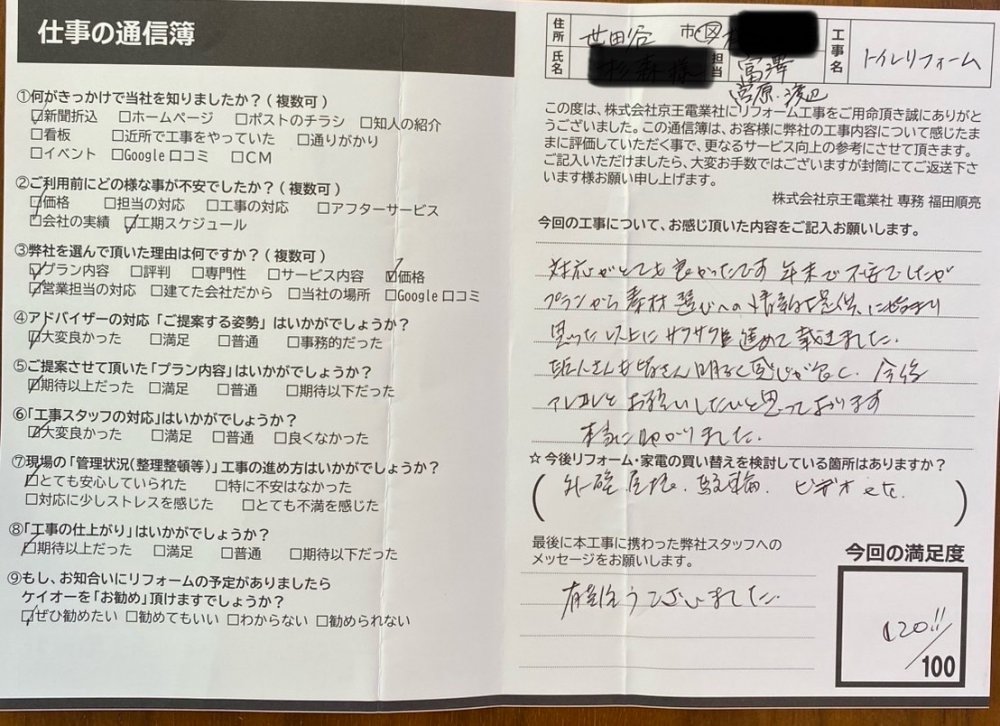 仕事の通信簿
①何がきっかけで当社を知りましたか？(複数可)
☑新聞折込 □ホームページ □ポストのチラシ □知人の紹介
□看板 □近所で工事をやっていた □通りがかり
□イベント □Google口コミ □CM
②ご利用前にどの様な事が不安でしたか？(複数可)
☑価格 □担当の対応 □工事の対応 □アフターサービス
□会社の実績 ☑工期スケジュール
③弊社を選んで頂いた理由は何ですか？(複数可)
☑プラン内容 □評判 □専門性 □サービス内容 ☑価格
☑営業担当の対応 □建てた会社だから □当社の場所 □Google口コミ
④アドバイザーの対応「ご提案する姿勢」はいかがでしょうか？
☑大変良かった □満足 □普通 □事務的だった
⑤ご提案させて頂いた「プラン内容」はいかがでしょうか？
☑期待以上だった □満足 □普通 □期待以下だった
⑥「工事スタッフの対応」はいかがでしょうか？
☑大変良かった □満足 □普通 □良くなかった
⑦現場の「管理状況(整理整頓等)」工事の進め方はいかがでしょうか？
☑とても安心していられた □特に不安はなかった
□対応に少しストレスを感じた □とても不満を感じた
⑧「工事の仕上がり」はいかがでしょうか？
☑期待以上だった □満足 □普通 □期待以下だった
⑨もし、お知合いにリフォームの予定がありましたら
ケイオーを「お勧め」頂けますでしょうか？
☑ぜひ勧めたい □勧めてもいい □わからない □勧められない
住所 世田谷 市区
氏名 様 担当 富澤
宮原・渡辺
工事名 トイレリフォーム
この度は、株式会社京王電業社にリフォーム工事をご用命頂き誠にありがと
うございました。この通信簿は、お客様に弊社の工事内容について感じたま
まに評価していただく事で、更なるサービス向上の参考にさせて頂きます。
ご記入いただけましたら、大変お手数ではございますが封筒にてご返送下さ
います様お願い申し上げます。
株式会社京王電業社 専務 福田順亮
今回の工事について、お感じ頂いた内容をご記入お願いします。
対応がとても良かったです 年末で不安でしたが
プランから素材選びへの情報提供に始まり
思った以上にサクサク進めて頂きました。
職人さんも皆さん明るく感じが良く、今後
アレコレとお願いしたいと思っております
本当に助かりました。
☆今後リフォーム・家電の買い替えを検討している箇所はありますか？
(外壁 屋根、駐輪、ビデオ etc.)
最後に本工事に携わった弊社スタッフへの
メッセージをお願いします。
有難うございました。
今回の満足度
120!!
/100